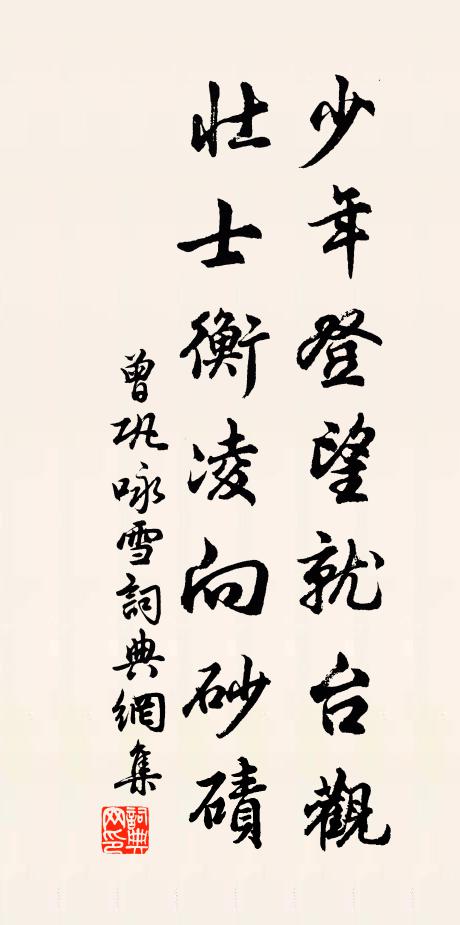 少年登望就台觀
壯士衡凌向砂磧
曾巩咏雪詞典網集
詞典
网印